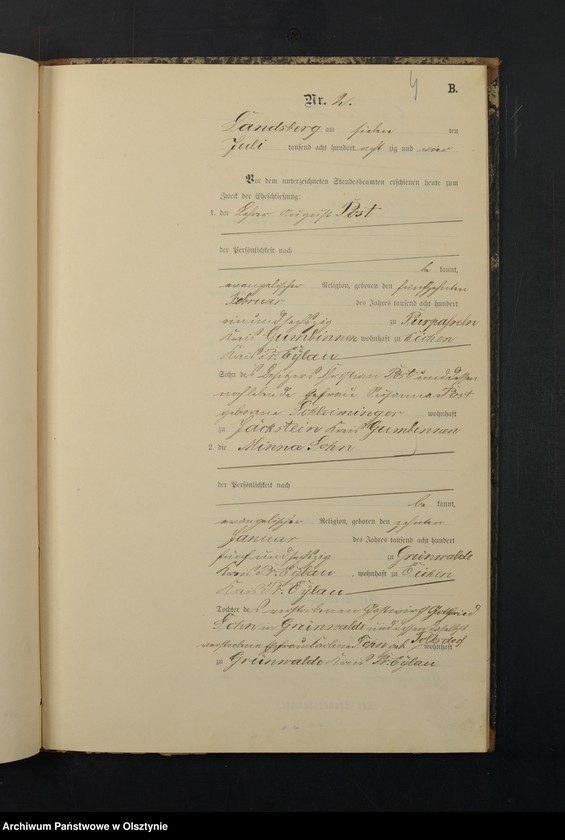 4
B.
Nr. 2.
Landsberg am sieben ten
Juli tausend acht hundert acht zig und vier
Vor dem unterzeichneten Standesbeamten erschienen heute zum
Zweck der Eheschließung:
1. der Lehrer August Post
der Persönlichkeit nach
be kannt,
evangelischer Religion, geboren den fünfzehnten
Februar des Jahres tausend acht hundert
einundsechszig zu Purpesseln
Kreis Gumbinnen, wohnhaft zu Eichen
Kreis Pr. Eylau
Sohn des Besitzers Christian Post und dessen
nochlebende Ehefrau Susanna Post
geborene Schleiminger wohnhaft
zu Jäckstein Kreis Gumbinnen
2. die Minna Sohn
der Persönlichkeit nach
be kannt,
evangelischer Religion, geboren den zehnten
Januar des Jahres tausend acht hundert
fünfundsechszig zu Grünwalde
Kreis Pr. Eylau, wohnhaft zu Eichen
Kreis Pr. Eylau
Tochter des verstorbenen Gastwirth Gottfried
Sohn in Grünwalde und dessen daselbst
verstorbene Ehefrau geb. Tolksdorf wohnhaft
zu Grünwalde Kreis Pr. Eylau
Archiwum Państwowe w Olsztynie